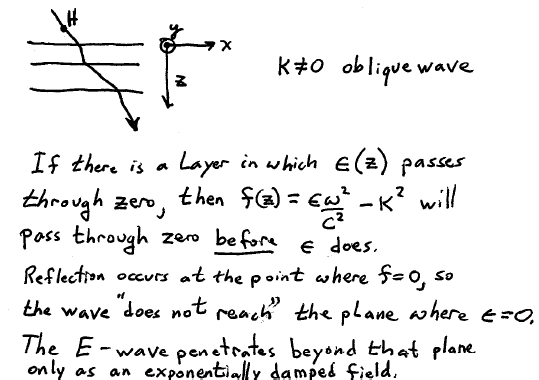 H
y
x
z
K≠0 oblique wave
If there is a Layer in which ε(z) passes
through zero, then f(z) = εω²/c² - K² will
pass through zero before ε does.
Reflection occurs at the point where f=0, so
the wave "does not reach" the plane where ε=0.
The E-wave penetrates beyond that plane
only as an exponentially damped field.